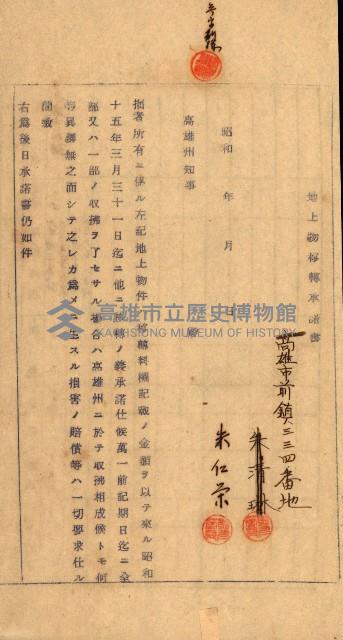 地上物移轉承諾書
高雄市前鎮三三四番地
朱清琳
朱仁榮
昭和　年　月　日
高雄州知事　殿
拙者所有ニ係ル左記地上物件ハ移轉料欄記載ノ金額ヲ以テ來ル昭和
十五年三月三十一日迄ニ他ニ移轉ノ義承諾仕候萬一前記期日迄ニ全
部又ハ一部ノ收拂ヲ了セサル場合ハ高雄州ニ於テ收拂相成候トモ何
等異議無之而シテ之レカ為メニ生スル損害ノ賠償等ハ一切要求仕ル
間敷
右為後日承諾書仍如件
高雄市立歷史博物館
KAOHSIUNG MUSEUM OF HISTORY